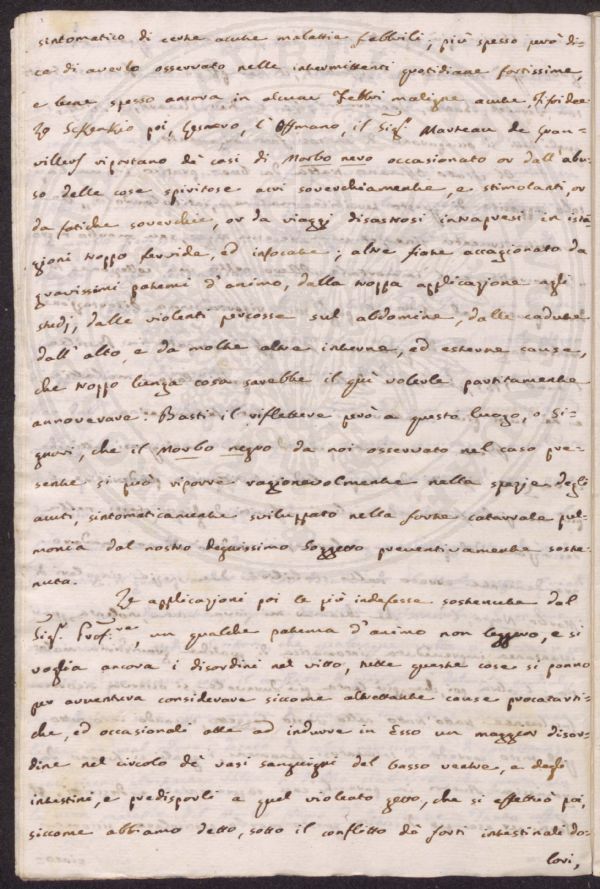 sintomatico di certe acute malattie febbrili; più spesso però di-
ce di averlo osservato nelle intermittenti quotidiane fortissime,
e bene spesso ancora in alcune Febbri maligne acute, Tifoidee
Lo Schenkio poi, Gesnero, l'Offmano, il Sig.r Marteau de Gran-
villers riportano de' casi di Morbo nero occasionato or dall'abu-
so delle cose spiritose acri soverchiamente, e stimolanti, or
da fatiche soverchie, or da viaggi disastrosi intrapresi in sta-
gioni troppo fervide, ed infocate; altre fiate accagionato da
gravissimi patemi d'animo, dalla troppa applicazione agli
studj, dalle violenti percosse sul abdomine, dalle cadute
dall'alto, e da molte altre interne, ed esterne cause,
che troppo lunga cosa sarebbe il qui volerle partitamente
annoverare. Basti il riflettere però a questo luogo, o Si-
gnori, che il Morbo negro da noi osservato nel caso pre-
sente si può riporre ragionevolmente nella spezie degli
acuti, sintomaticamente sviluppato nella forte catarrale pul-
monica dal nostro degnissimo Soggetto preventivamente soste-
nuta.
Le applicazioni poi le più indefesse sostenute dal
Sig.r Prof.re, un qualche patema d'animo non leggero, e si
voglia ancora i disordini nel vitto, tutte queste cose si ponno
per avventura considerare siccome altrettante cause procatarti-
che, ed occasionali atte ad indurre in Esso un maggior disor-
dine nel circolo de' vasi sanguigni del basso ventre, e degli
intestini, e predisporli a quel violento getto, che si effettuò poi,
siccome abbiamo detto, sotto il conflitto de' forti intestinali do-
lori,